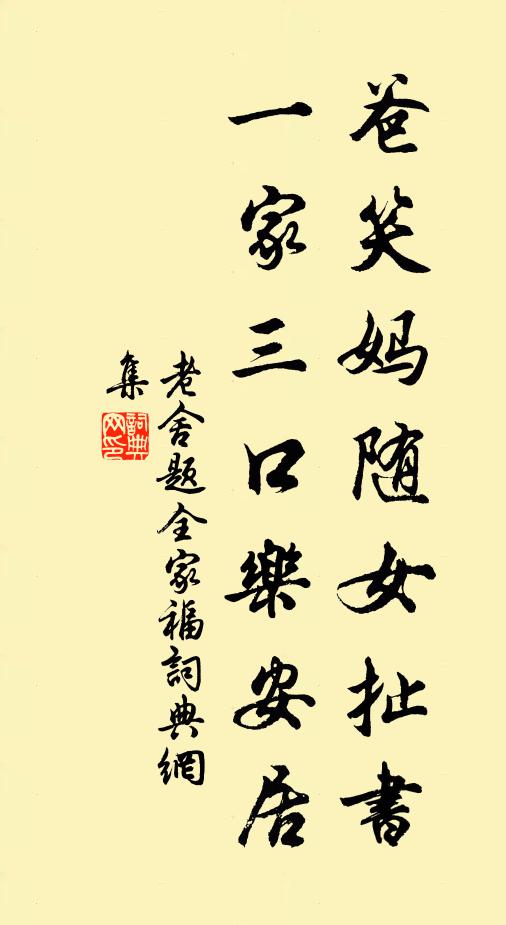 爸笑妈随女扯書
一家三口樂安居
老舍题全家福詞典網
集
詞典
网印